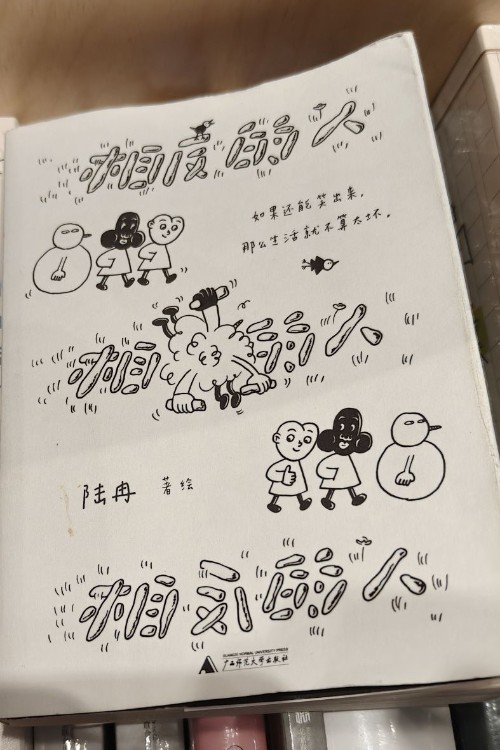 相的人
如果还能笑出来，
那么生活就不算太坏。
相的人
陆冉 著绘
相的人
GUANGXI NORMAL UNIVERSITY PRESS
广西师范大学出版社